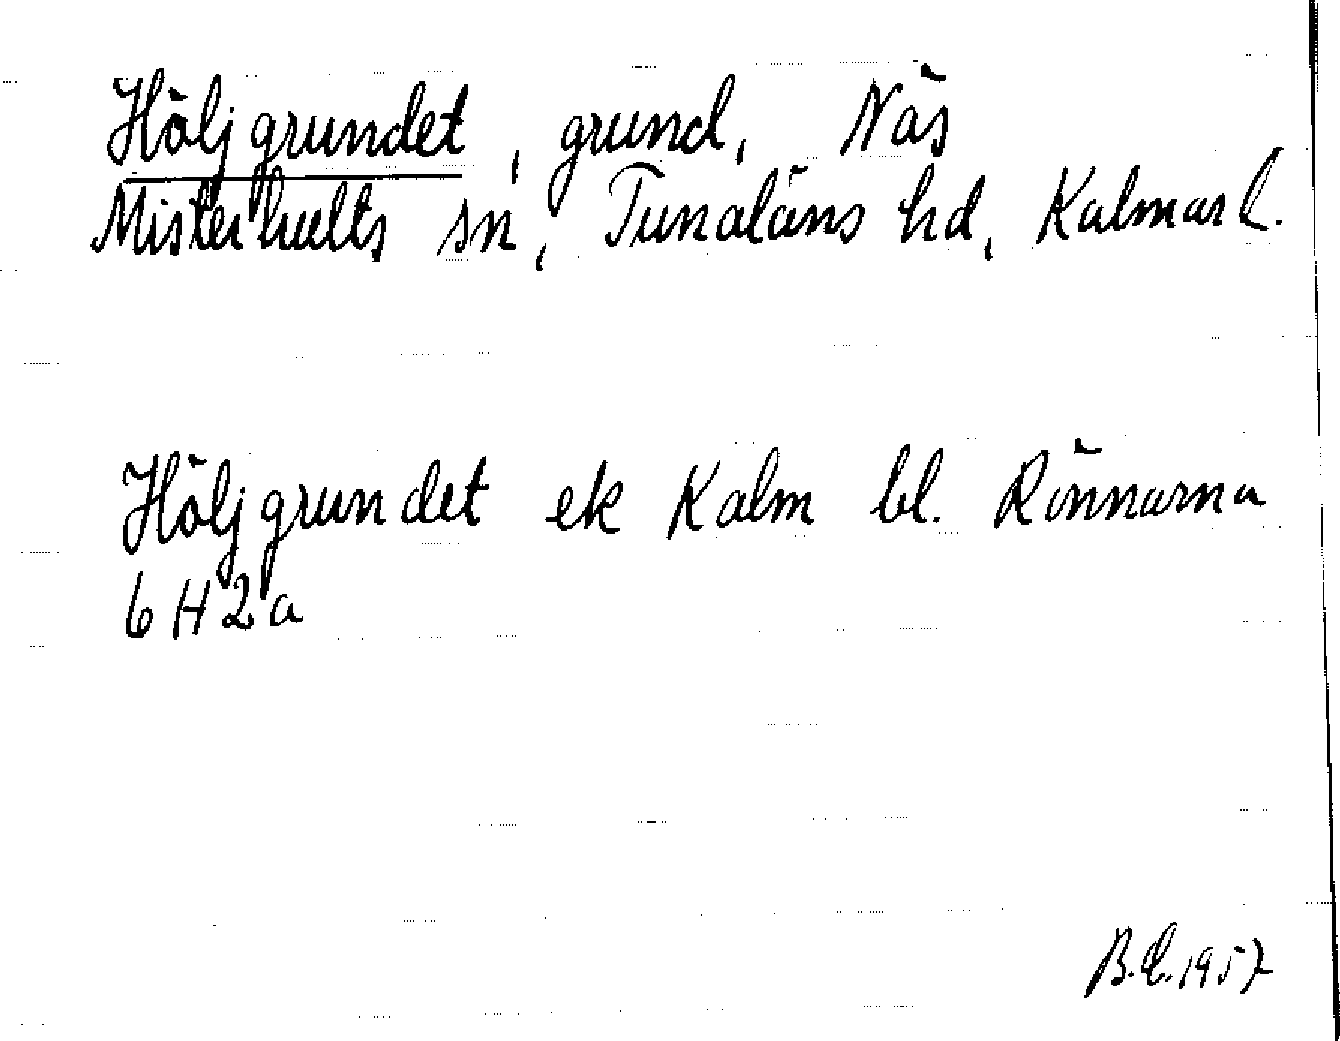 Höljgrundet, grund, Näs
Misterhults sn, Tunaläns hd, Kalmar l.
Höljgrundet ek Kalm bl. Rönnarna
6 H 2 a
B.L. 1957